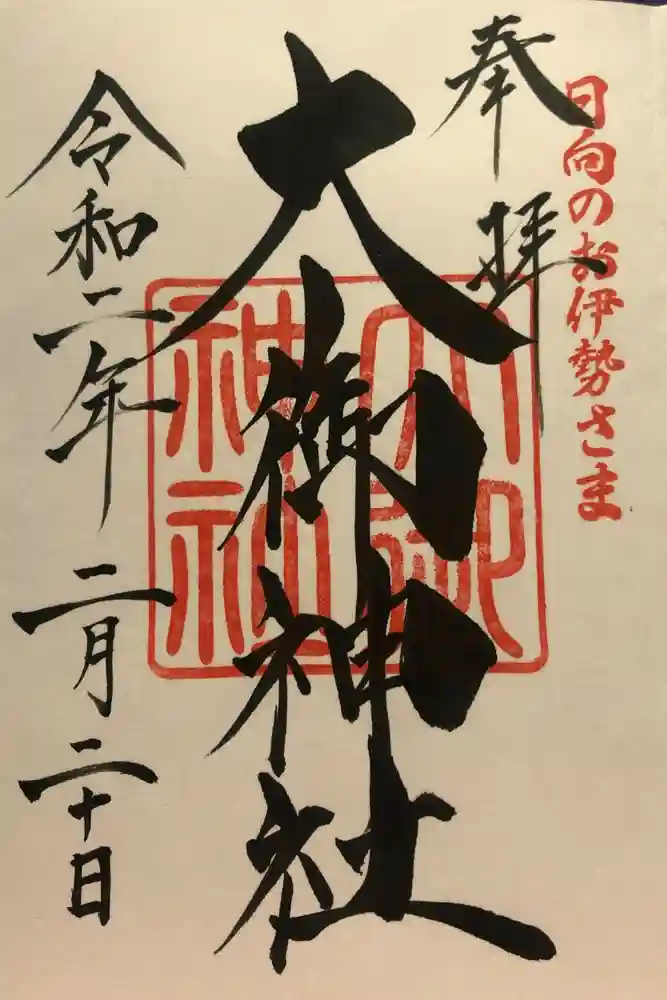 日向のお伊勢さま
奉拝
大御神社
大御
神社
令和二年二月二十日